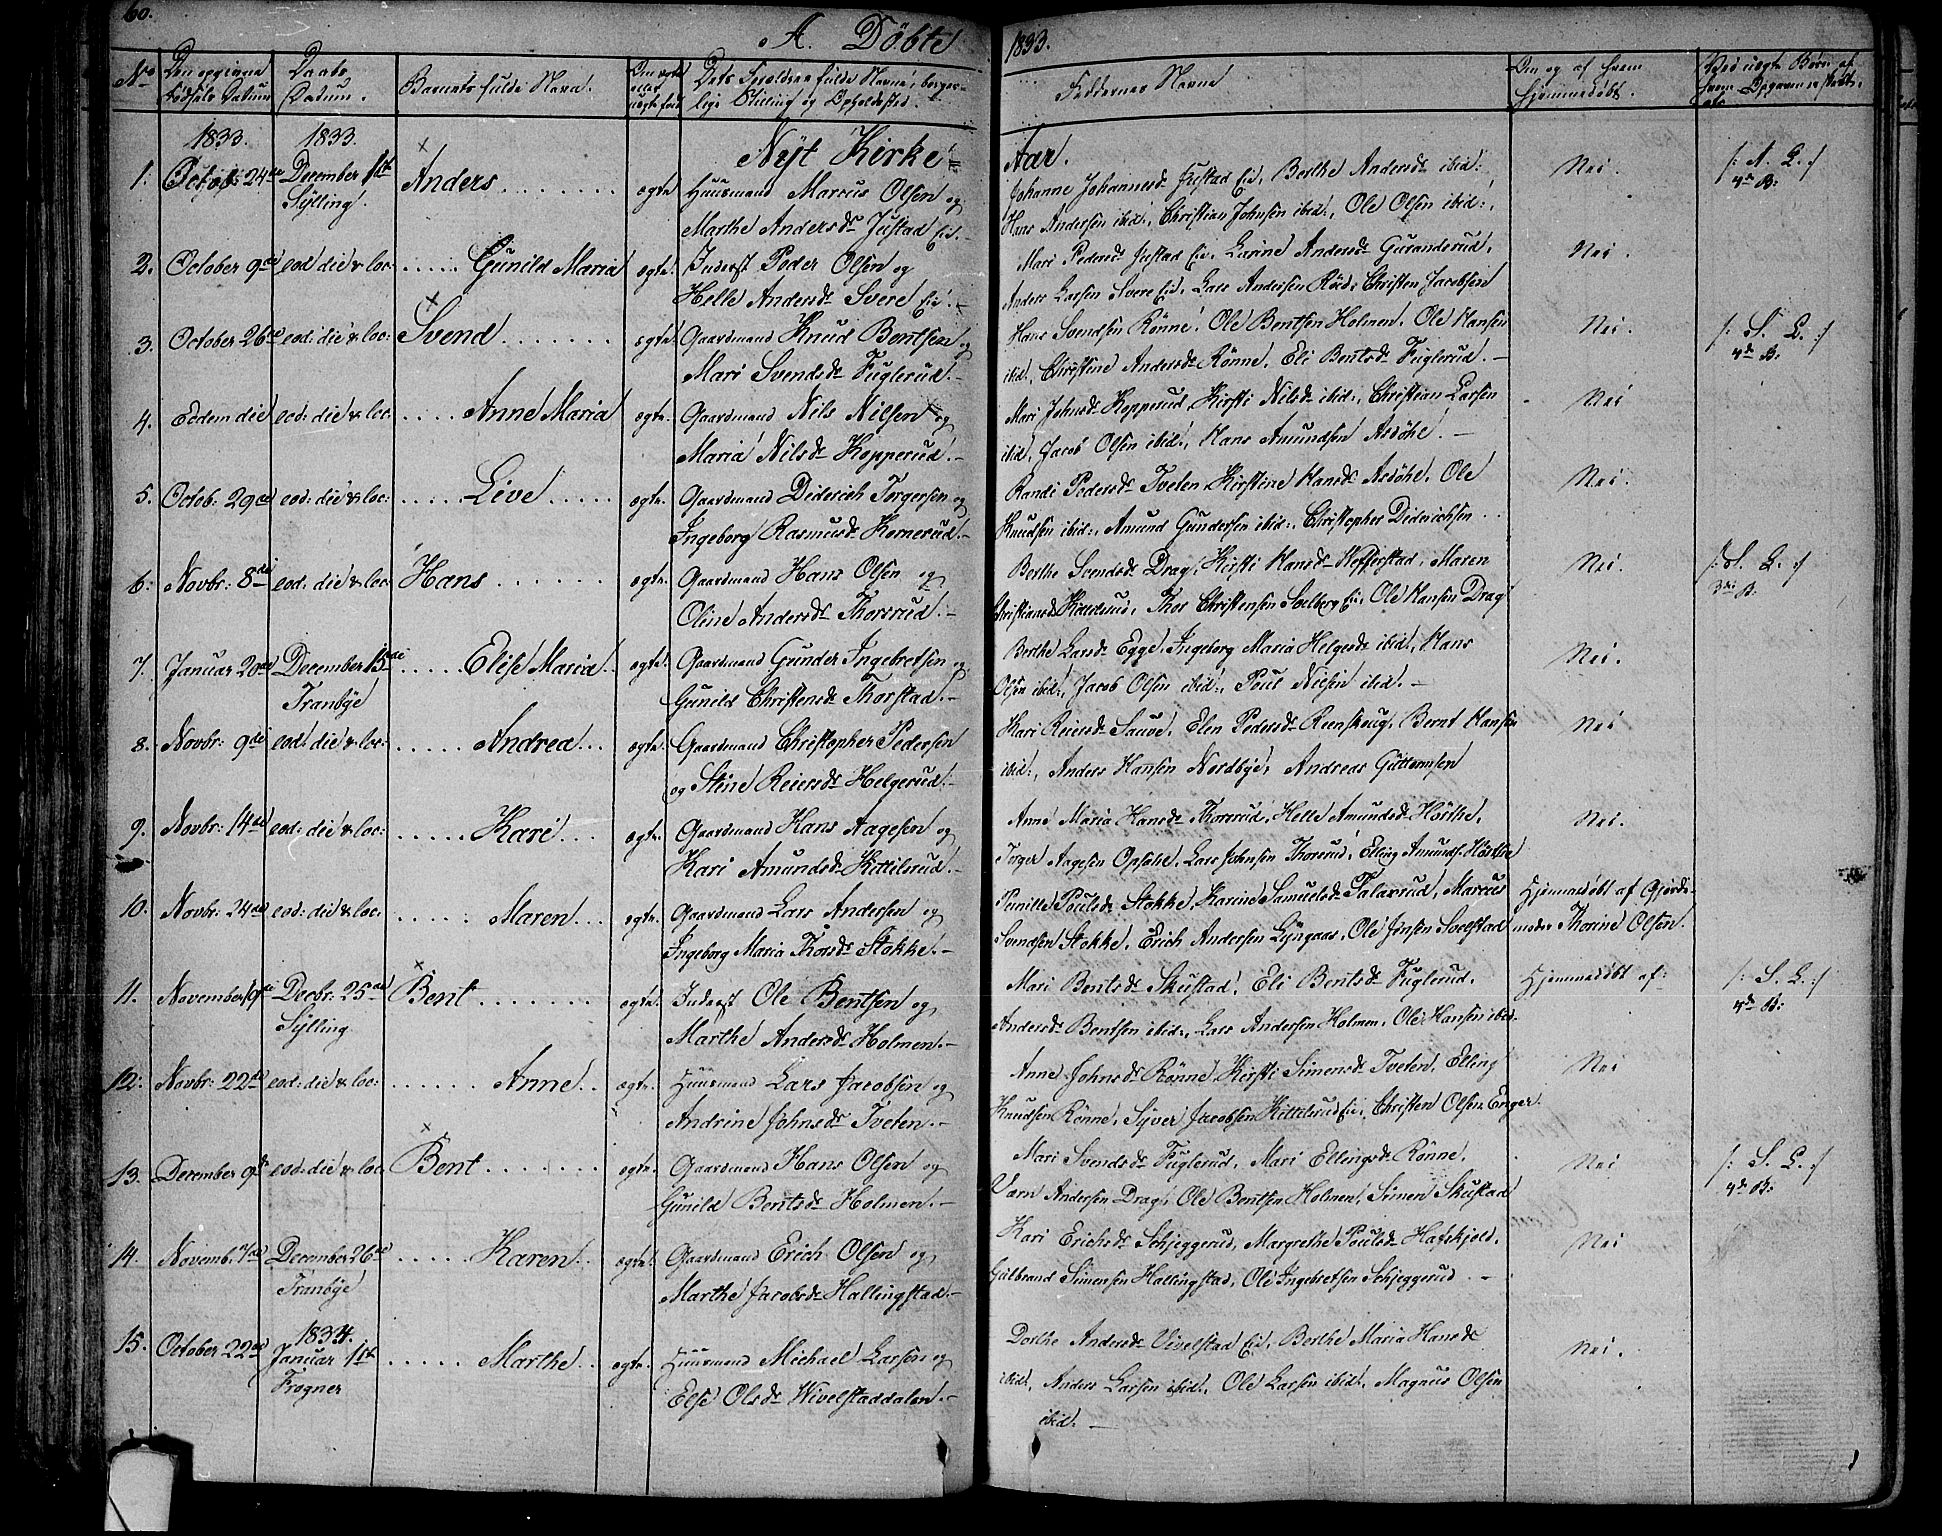 60.
A. Döbte 1833.
No Den opgivne Födsels Datum Daabs Datum. Barnets fulde Navn. Om ægte eller uægte født Dets Forældres fulde Navne, borgerlige Stilling og Opholdssted.
Faddernes Navne Om og af hvem hjemmedøbt. Ved uægte Børn af hvem Opgaven er skeet
1833. 1833. Nyt Kirke= Aar.
1. Octob: 24de December 1ste Anders ægte Huusmand Marcus Olsen og
Sylling. Marthe Andersdr Justad Ei.
Johanne Johannesdr Justad Ei, Berthe Andersdr ibid: Nei. /: A. L. :/
Hans Andersen ibid:, Christian Johnsen ibid:, Ole Olsen ibid:, 4de B:
2. October 9de eod: die & loc: Gunild Maria ægte. Inderst Peder Olsen og
Helle Andersdr Svere Ei.
Mari Pedersdr Justad Ei, Larine Andersdr Guranderud, Nei.
Anders Larsen Svere Ei, Lars Andersen Röed, Christen Jacobsen
3. October 26de eod: die & loc: Svend ægte. Gaardmand Knud Bentsen og
Mari Svendsdr Fuglerud.
Hans Svendsen Rönne, Ole Bentsen Holmen, Ole Hansen Nei. /: S. L. :/
ibid, Christine Andersdr Rönne, Eli Bentsdr Fuglerud. 4de B:
4. Eodem die eod: die & loc: Anne Maria ægte. Gaardmand Nils Nilsen og
Maria Nilsdr Kopperud.
Mari Johnsdr Kopperud, Kirsti Nilsdr ibid:, Christian Larsen Nei
ibid, Jacob Olsen ibid:, Hans Amundsen Asdöhl.
5. Octob: 29de eod: die & loc: Live ægte. Gaardmand Diderich Torgersen og
Ingeborg Rasmusdr Kornerud.
Randi Pedersdr Tveten, Kirstine Hansdr Asdöhl, Ole Nei.
Knudsen ibid:, Amund Gundersen ibid:, Christopher Diderichsen
6: Novbr: 8de eod: die & loc: Hans ægte. Gaardmand Hans Olsen og
Oline Andersdr Thorsrud.
Berthe Svendsdr Drag, Kirsti Hansdr Hefferstad, Maren Nei. /: S. L. :/
Christiansdr Kittilsrud, Thor Christensen Solberg Ei, Ole Hansen Drag 3die B:
7. Januar 20de December 15de Elise Maria ægte. Gaardmand Gunder Ingebretsen og
Tranbye Gunild Christensdr Thorstad.
Berthe Larsdr Egge, Ingeborg Maria Helgesdr ibid, Hans Nei.
Olsen ibid:, Jacob Olsen ibid:, Poul Nielsen ibid.
8. Novbr: 9de eod: die & loc: Andrea ægte. Gaardmand Christopher Pedersen
og Stine Reiersdr Helgerud.
Kari Reiersdr Sauve, Elen Pedersdr Reenskaug, Bernt Hansen Nei
ibid:, Anders Hansen Nordbye, Andreas Guttormsen
9. Novbr: 14de eod: die & loc: Kari ægte. Gaardmand Hans Aagesen og
Kari Amundsdr Kittilsrud.
Anne Maria Hansdr Thorsrud, Helle Amundsdr Hörthe, Nei.
Torger Aagesen Opsahl, Lars Johnsen Thorsrud, Elling Amunds. Hörthe
10. Novbr: 24de eod: die & loc: Maren ægte. Gaardmand Lars Andersen og
Ingeborg Maria Thorsdr Stokke.
Pernille Poulsdr Stokke, Karine Samuelsdr Talaxrud, Marcus Hjemmedöbt af Gjordemoder Thorine Olsen.
Svendsen Stokke, Erich Andersen Lyngaas, Ole Jensen Svelstad
11. November 19de Decbr: 25de Bent ægte. Inderst Ole Bentsen og
Sylling Marthe Andersdr Holmen.
Mari Bentsdr Skustad, Eli Bentsdr Fuglerud, Hjemmedöbt af: /: S. L. :/
Andersdr Bentsen ibid:, Lars Andersen Holmen, Ole Hansen ibid. 4de B:
12. Novbr: 22de eod: die & loc: Anne ægte. Huusmand Lars Jacobsen og
Andrine Johnsdr Tveten.
Anne Johnsdr Rönne, Kirsti Simensdr Tveten, Elling Nei
Knudsen Rönne, Syver Jacobsen Kittilsrud Ei, Christen Olsen Enger.
13. December 9de eod: die & loc: Bent ægte. Gaardmand Hans Olsen og
Gunild Bentsdr Holmen.
Mari Svendsdr Fuglerud, Mari Ellingsdr Rönne, Nei /: S. L. :/
Varn Andersen Drag, Ole Bentsen Holmen, Simen Skustad 4de B:
14. Novemb: 7de December 26de Karen ægte. Gaardmand Erich Olsen og
Tranbye Marthe Jacobsdr Hallingstad.
Kari Erichsdr Schjeggerud, Margrethe Poulsdr Hafskjold, Nei
Gulbrand Simensen Hallingstad, Ole Ingebretsen Schjeggerud.
15. October 22de 1834. Januar 1ste Marthe ægte. Huusmand Michael Larsen og
Frogner Else Olsdr Wivelstaddalen.
Dorthe Andersdr Vivelstad Ei, Berthe Maria Hansdr Nei.
ibid, Anders Larsen ibid, Ole Larsen ibid, Magnus Olsen
ibid.